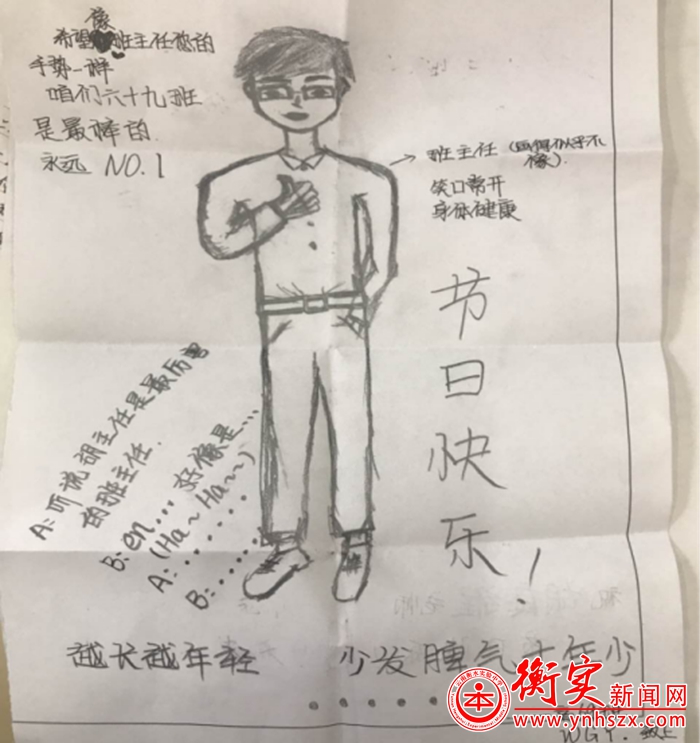 像
希望班主任您的
手势一样
咱们六十九班
是最棒的
永远 NO.1
→ 班主任 (画得似乎不像).
笑口常开
身体健康
节日快乐!
A: 听说胡主任是最厉害
的班主任.
B: en... 好像是...
(Ha~Ha~~)
A: ......
B: ......
越长越年轻 少发脾气十年少
WGY. 敬上
衡实新闻网
www.ynhszx.com
云南衡水实验中学